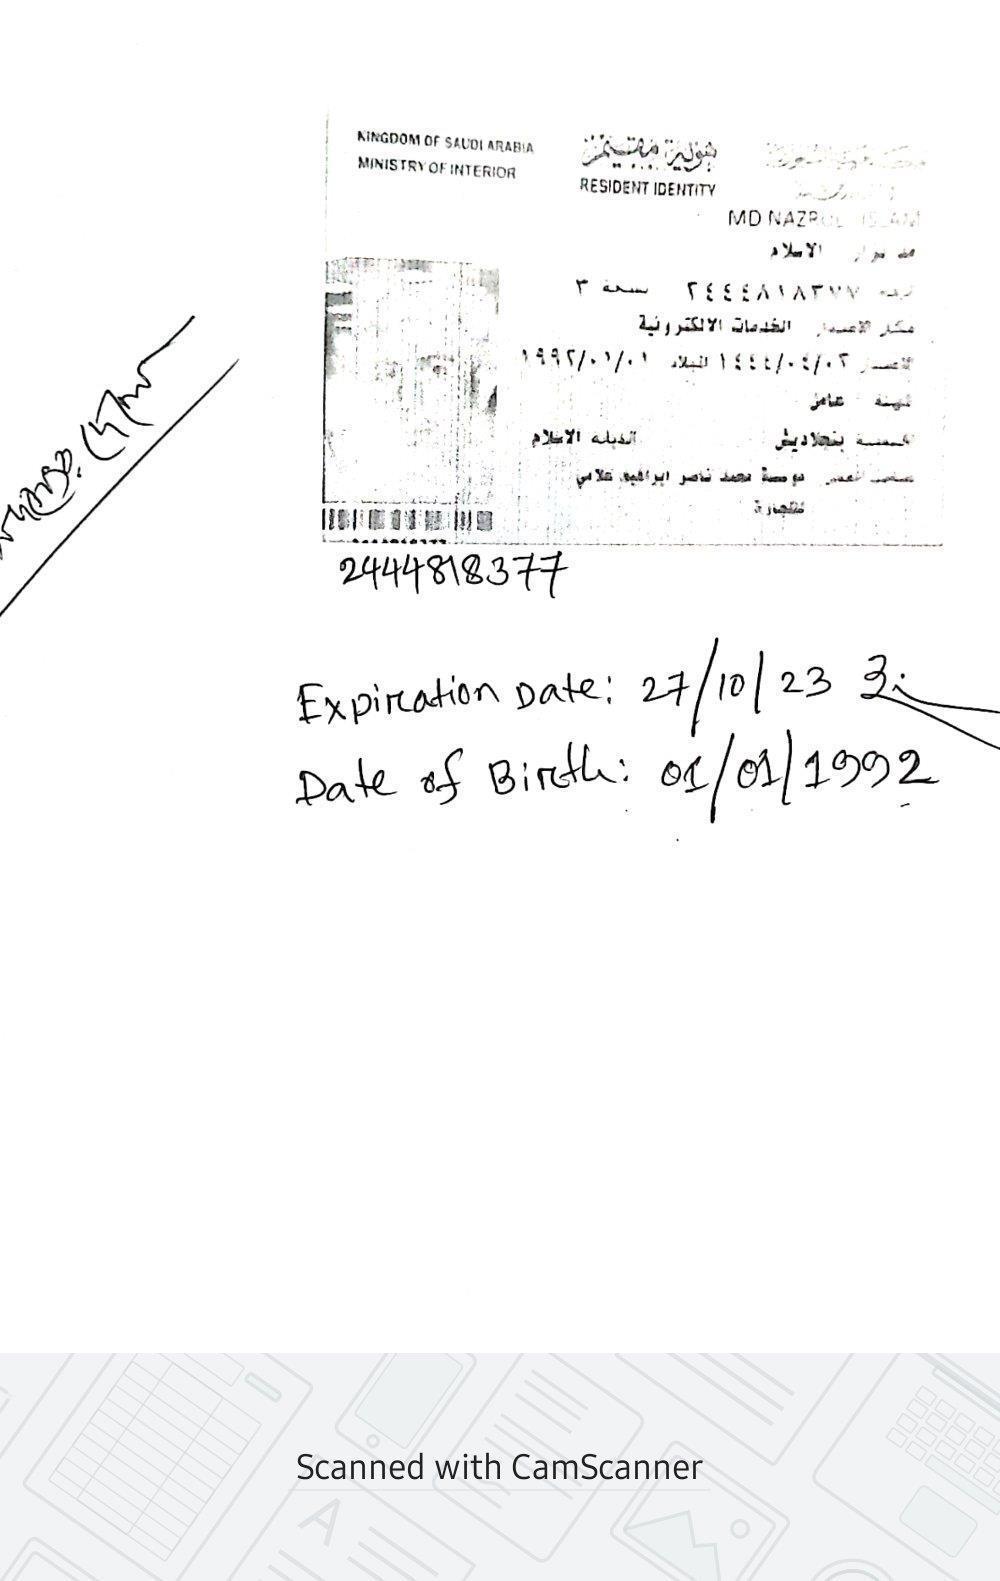 KINGDOM OF SAUDI ARABIA
MINISTRY OF INTERIOR
هوية مقيم
RESIDENT IDENTITY
MD NAZRUL ISLAM
الاسلام
٢٤٤٤٨١٨٣٧٧ نسخة ٣
مكان الاصدار الخدمات الالكترونية
الاصدار ١٤٤٤/٠٤/٠٢ الميلاد ١٩٩٢/٠١/٠١
المهنة عامل
الجنسية بنجلاديش الديانة الاسلام
صاحب العمل موسسة محمد ناصر ابراهيم علامي
للتجارة
2444818377
Expiration Date: 27/10/23
Date of Birth: 01/01/1992
Scanned with CamScanner